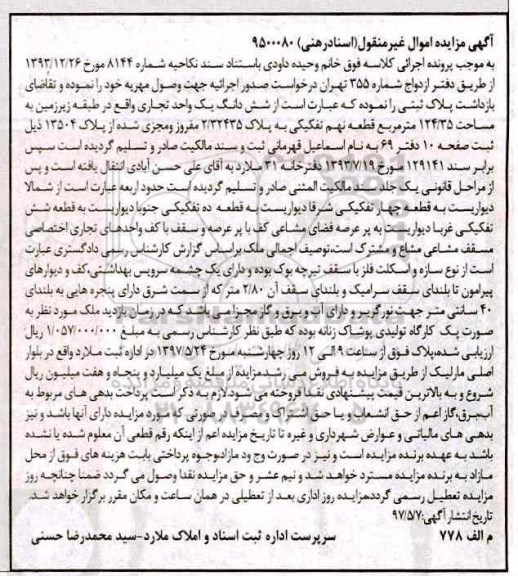 آگهی مزایده اموال غیرمنقول(اسنادرهنی) ۹۵۰۰۰۸۰
به موجب پرونده اجرائی کلاسه فوق خانم وحیده داودی باستناد سند نکاحیه شماره ۸۱۴۴ مورخ ۱۳۹۳/۱۲/۲۶
از طریق دفتر ازدواج شماره ۳۵۵ تهران درخواست صدور اجرائیه جهت وصول مهریه خود را نموده و تقاضای
بازداشت پلاک ثبتی را نموده که عبارت است از شش دانگ یک واحد تجاری واقع در طبقه زیرزمین به
مساحت ۱۲۴/۳۵ مترمربع قطعه نهم تفکیکی به پلاک ۲/۳۲۴۳۵ مفروز ومجزی شده از پلاک ۱۳۵۰۴ ذیل
ثبت صفحه ۱۰ دفتر ۶۹ به نام اسماعیل قهرمانی ثبت و سند مالکیت صادر و تسلیم گردیده است سپس
برابر سند ۱۲۹۱۴۱ مورخ ۱۳۹۳/۷/۱۹ دفترخانه ۳۱ ملارد به آقای علی حسن آبادی انتقال یافته است و پس
از مراحل قانونی یک جلد سند مالکیت المثنی صادر و تسلیم گردیده است حدود اربعه عبارت است از شمالا
دیواریست به قطعه چهار تفکیکی شرقا دیواریست به قطعه ده تفکیکی جنوبا دیواریست به قطعه شش
تفکیکی غربا دیواریست به بر عرصه فضای مشاعی کف با بر عرصه و سقف با کف واحدهای تجاری اختصاصی
مسقف مشاعی مشاع و مشترک است،توصیف اجمالی ملک براساس گزارش کارشناس رسمی دادگستری عبارت
است از نوع سازه و اسکلت فلز با سقف تیرچه بوک بوده و دارای یک چشمه سرویس بهداشتی،کف و دیوارهای
پیرامون تا بلندای سقف سرامیک و بلندای سقف آن ۲/۸۰ متر که از سمت شرق دارای پنجره هایی به بلندای
۴۰ سانتی متر جهت نورگریر و دارای آب و برق و گاز مجزا می باشد که در زمان بازدید ملک مورد نظر به
صورت یک کارگاه تولیدی پوشاک زنانه بوده که طبق نظر کارشناس رسمی به مبلغ ۱/۰۵۷/۰۰۰/۰۰۰ ریال
ارزیابی شده،پلاک فوق از ساعت ۹ الی ۱۲ روز چهارشنبه مورخ ۱۳۹۷/۵/۲۴ در اداره ثبت ملارد واقع در بلوار
اصلی مارلیک از طریق مزایده به فروش می رشد.مزایده از مبلغ یک میلیارد و پنجاه و هفت میلیون ریال
شروع و به بالاترین قیمت پیشنهادی نقدا فروخته می شود.لازم به ذکر است پرداخت بدهی های مربوط به
آب،برق،گاز اعم از حق انشعاب و یا حق اشتراک ومصرف در صورتی که مورد مزایده دارای آنها باشد و نیز
بدهی های مالیاتی و عوارض شهرداری و غیره تا تاریخ مزایده اعم از اینکه رقم قطعی آن معلوم شده یا نشده
باشد به عهده برنده مزایده است و نیز در صورت وج ود مازاد،وجوه پرداختی بابت هزینه های فوق از محل
مازاد به برنده مزایده مسترد خواهد شد و نیم عشر و حق مزایده نقدا وصول می گردد ضمنا چنانچه روز
مزایده تعطیل رسمی گردد،مزایده روز اداری بعد از تعطیلی در همان ساعت و مکان مقرر برگزار خواهد شد.
تاریخ انتشار آگهی:۹۷/۵/۷
م الف ۷۷۸ سرپرست اداره ثبت اسناد و املاک ملارد-سید محمدرضا حسنی